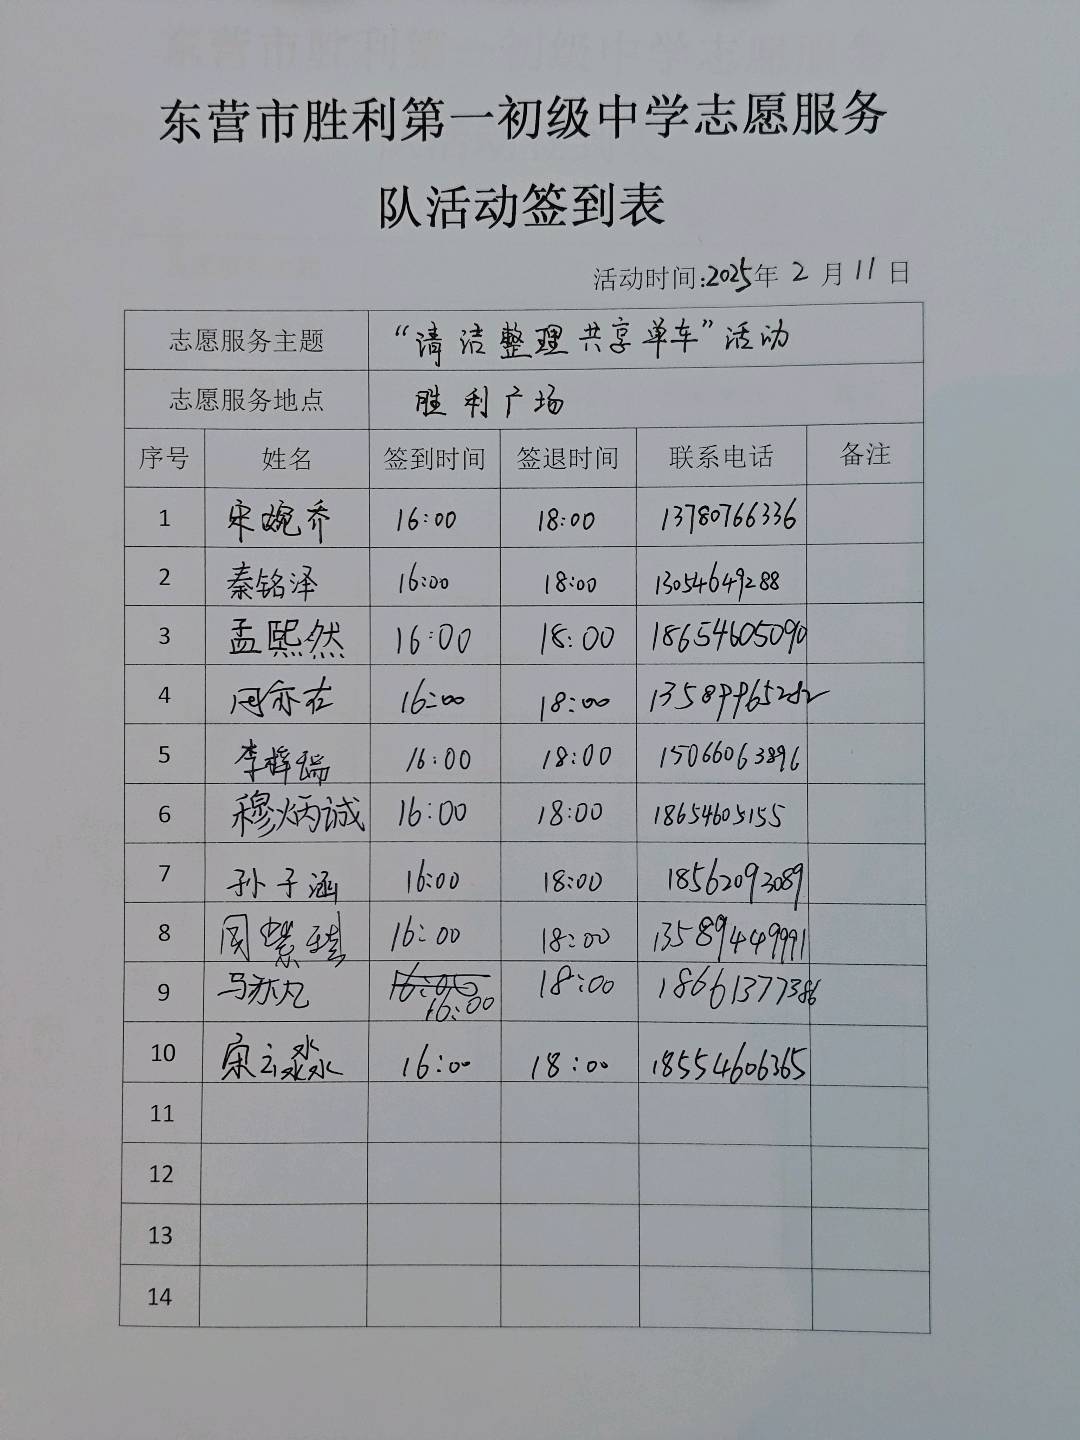 东营市胜利第一初级中学志愿服务
队活动签到表
活动时间:2025年 2 月 11 日
志愿服务主题 “请洁整理共享单车”活动
志愿服务地点 胜利广场
序号 姓名 签到时间 签退时间 联系电话 备注
1 宋婉乔 16:00 18:00 13780766336
2 秦铭泽 16:00 18:00 13054649288
3 孟熙然 16:00 18:00 18654605090
4 周亦在 16:00 18:00 13589965282
5 李梓瑞 16:00 18:00 15066063896
6 穆炳诚 16:00 18:00 18654605155
7 孙子涵 16:00 18:00 18562093089
8 周紫琪 16:00 18:00 13589449991
9 马 16:00 16:00 18:00 18661377386
10 宋云淼 16:00 18:00 18554606365
11
12
13
14